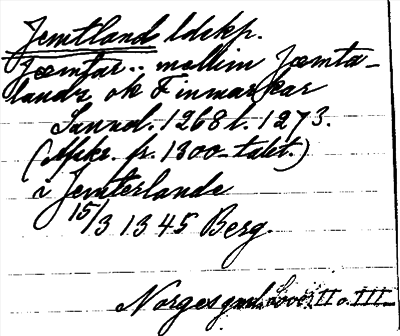 Jemtland ldskp.
Jæmtar.. mellim Jæmta-
landz ok Finmarkar
Sunnd. 1268 l. 1273.
(Afskr. fr. 1300-talet.)
a Jemterlande
15/3 1345 Berg.
Norges gml. Love II o. III